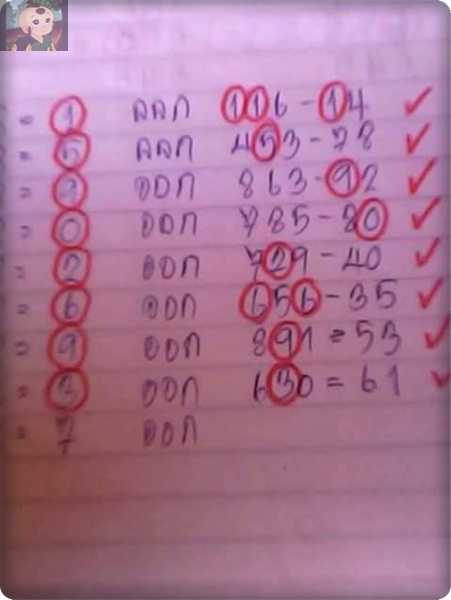 = 1 ออก 116 - 14 ✓
= 5 ออก 453 - 78 ✓
= 9 ออก 863 - 92 ✓
= 0 ออก 785 - 80 ✓
= 2 ออก 729 - 40 ✓
= 6 ออก 656 - 35 ✓
= 9 ออก 891 = 53 ✓
= 3 ออก 630 = 61 ✓
= 7 ออก